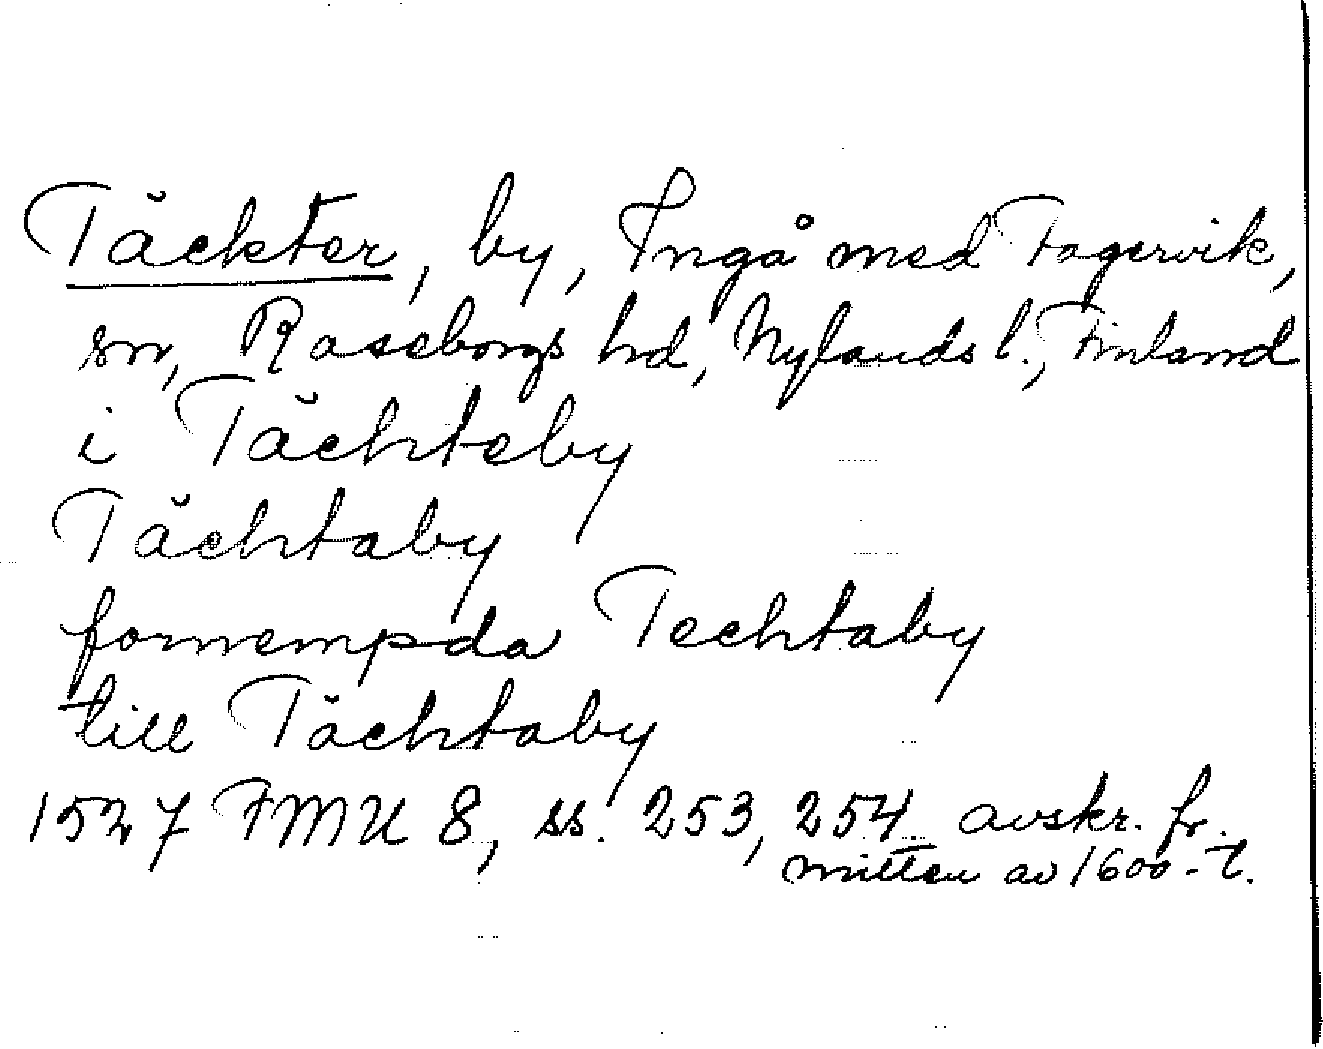 Täckter, by, Ingå med Fagervik,
sn, Raseborgs hd, Nylands l., Finland
i Tächteby
Tächtaby
fornempda Techtaby
till Tächtaby
1527 FMU 8, ss. 253, 254 avskr. fr.
mitten av 1600-t.